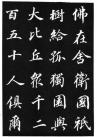 佛在舍衞國祇
樹給孤獨園與
大比丘眾千二
百五十人俱爾